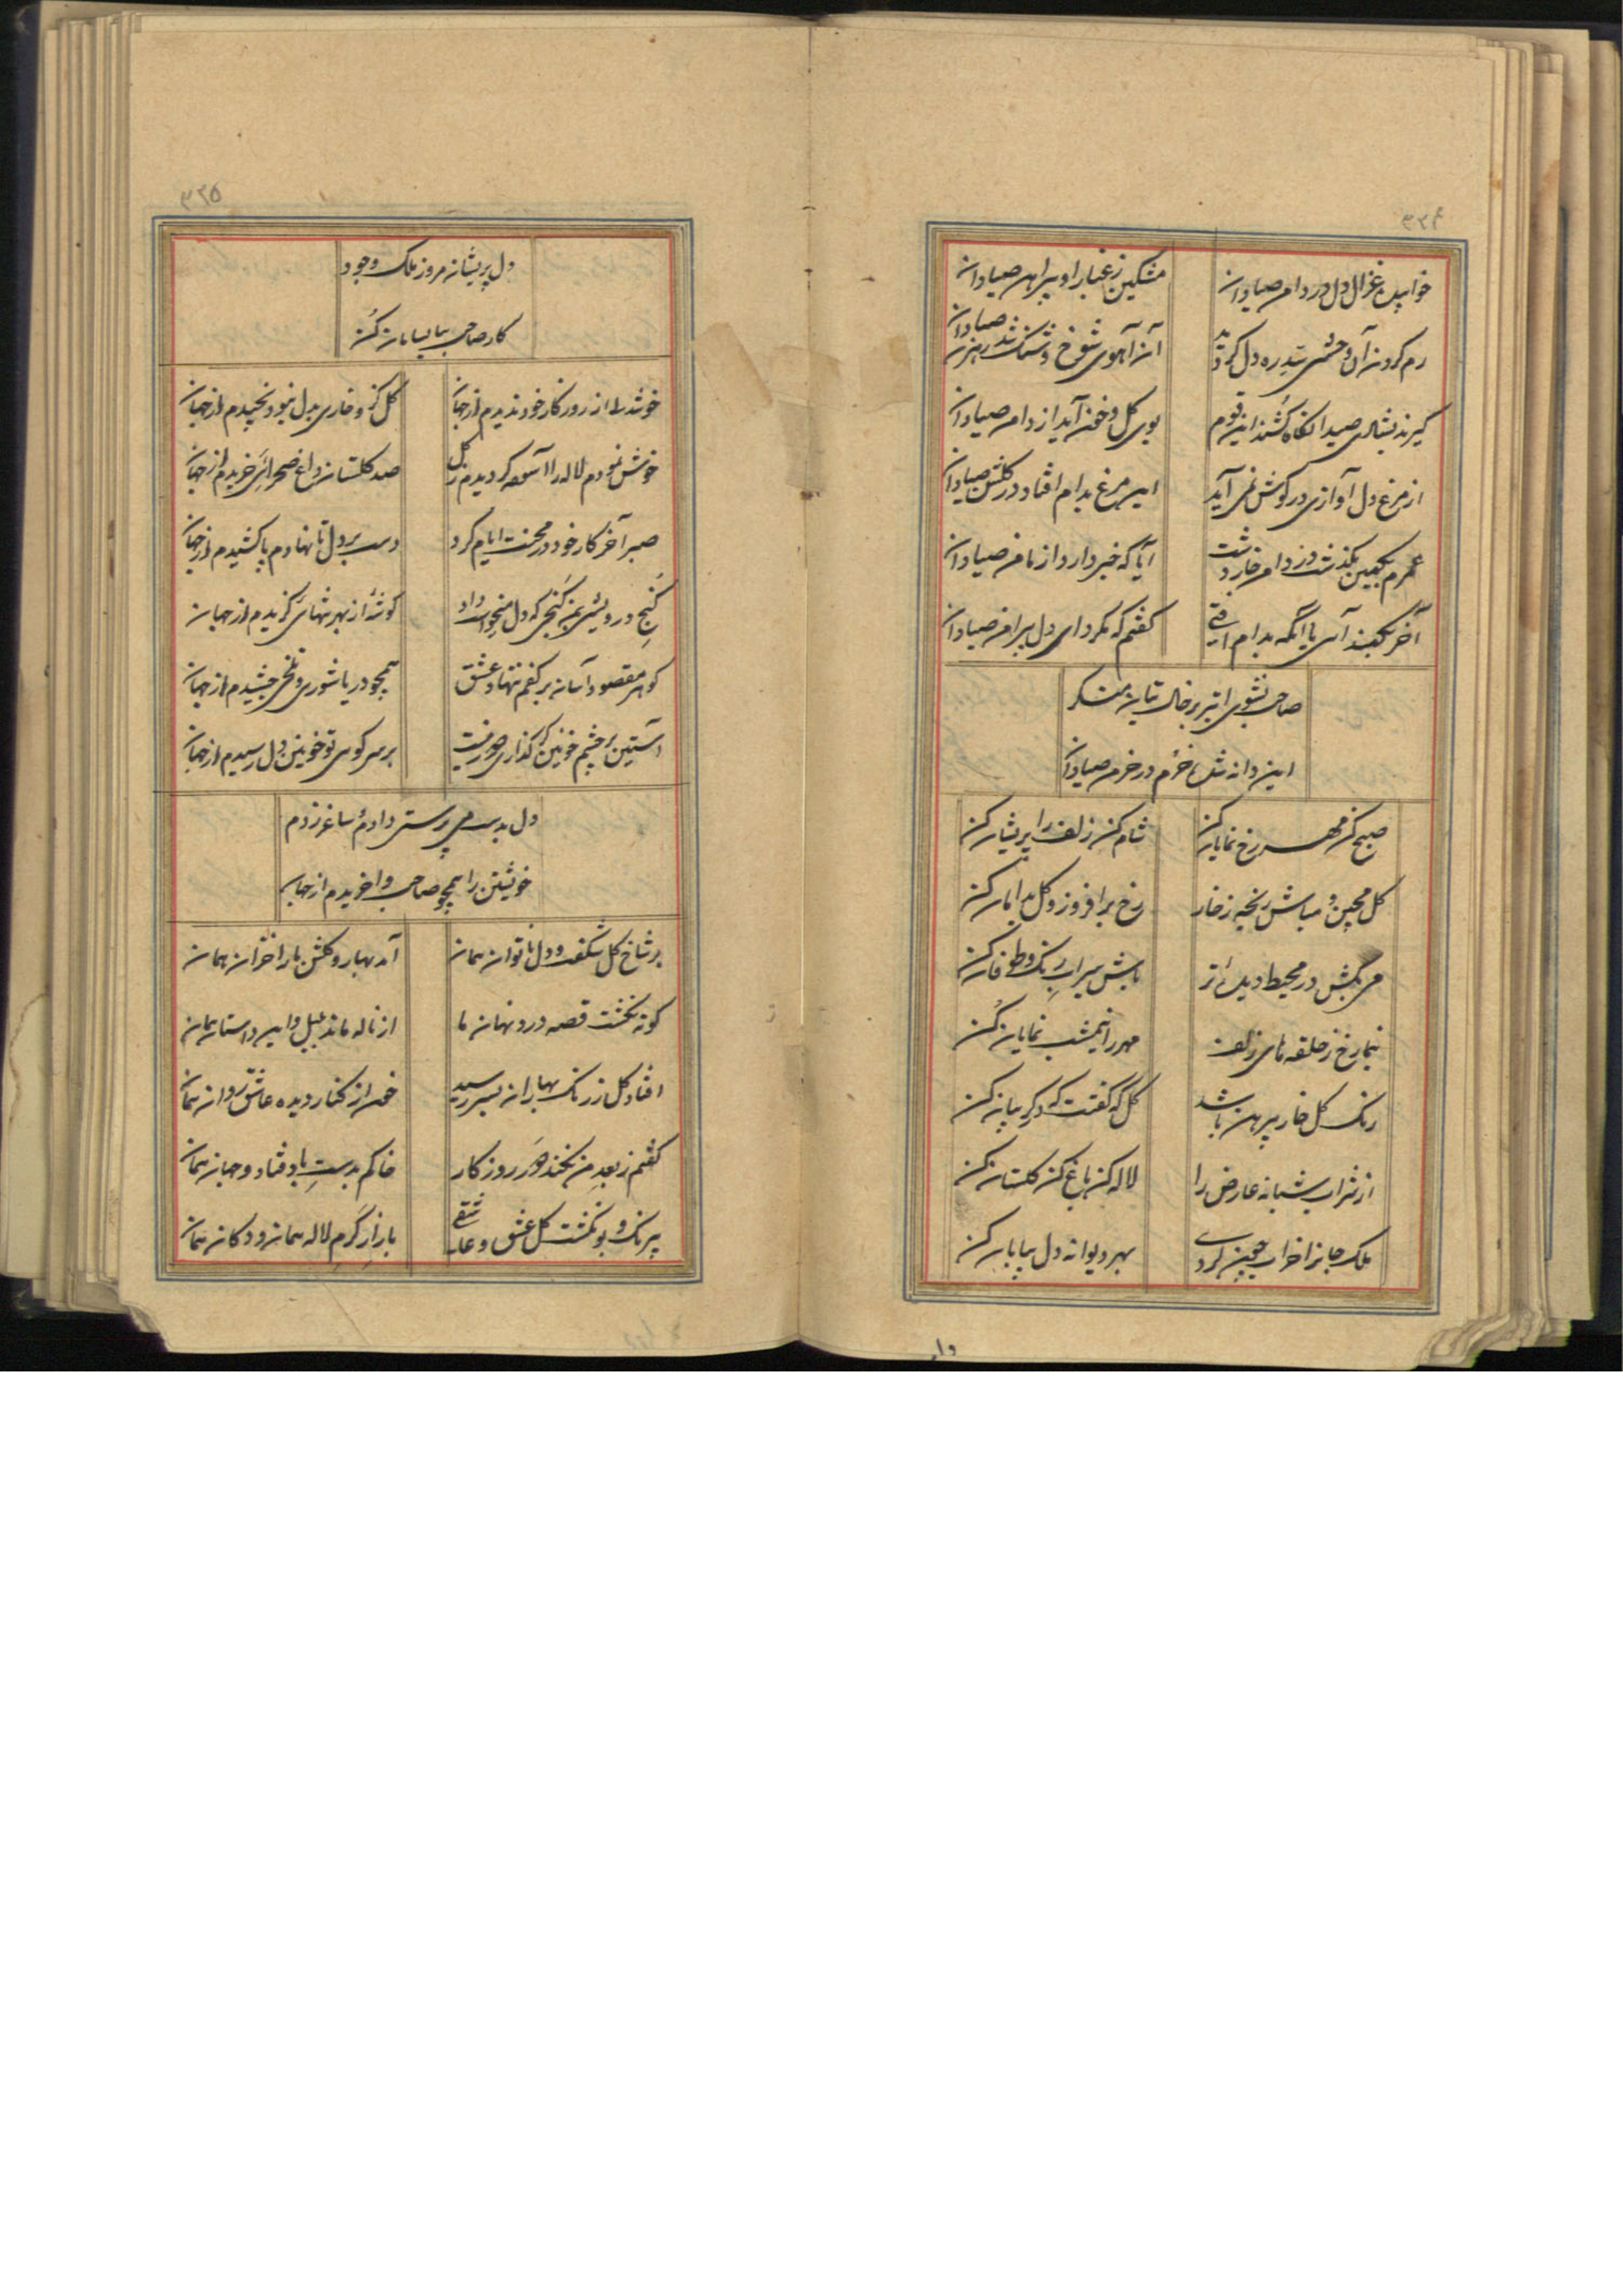 ۳۲۴
خوابیده غزال دل در دامن صیادان
مشکین ز غبار او پیراهن صیادان
رم کردن آن وحشی سد ره دل گردید
آن آهوی شوخ و شنگ شد رهزن صیادان
گیرند بشادی صید آنگاه کشند این قوم
بوی گل و خون آید از دامن صیادان
از مرغ دل آوازی در گوش نمی آید
این مرغ بدام افتاد در گلشن صیادان
عمرم بکمین بگذشت وز دامن خار دشت
آیا که خبر دارد از مامن صیادان
آخر بکمند آری یا آنکه بدام افتی
گفتم که مکرد ای دل پیرامن صیادان
صاحب نشوی ابتر بر خال بتان منکر
این دانه شده خرم در خرمن صیادان
صبح کن مهر رخ نمایان کن
شام کن زلف را پریشان کن
گل مچین و مباش رنجه ز خار
رخ برافروز و گل بدامان کن
می بکش در محیط دیده تر
باش سیراب رنگ و طوفان کن
بنما رخ ز حلقه های زلف
مهر را نیمشب نمایان کن
رنگ گل خار پیرهن باشد
گل که گفتت که در گریبان کن
از شراب شبانه عارض را
لاله کن باغ کن گلستان کن
ملک جانرا خراب چین کردی
بهر دیوانه دل بیابان کن
دل
۳۲۵
دل پریشان مروز ملک وجود
کار صاحب بیا بسامان کن
خوشدلی از روزگار خود ندیدم از جهان
گل کز و خاری بدل نبود نچیدم از جهان
خوش نمودم لاله را آسوده گردیدم ز گل
صد گلستان داغ صحرائی خریدم از جهان
صبر آخر کار خود در محنت ایام کرد
دست بر دل تا نهادم پا کشیدم از جهان
کنج درویشی بمن گنجی که دل میخواست داد
گوشه از بهر تنهائی گزیدم از جهان
گوهر مقصود آسان بر کفم ننهاد عشق
همچو دریا شوری و تلخی چشیدم از جهان
آستین بر چشم خونین گر گذاری دور نیست
بر سر کوی تو خونین دل رسیدم از جهان
دل بدست می پرستی دادم و ساغر زدم
خویشتن را همچو صاحب واخریدم از جهان
بر شاخ گل شکفت و دل ناتوان همان
آمد بهار و گلشن ما را خزان همان
کوته نگشت قصه درد نهان ما
از ناله ماند بلبل و این داستان همان
افتاد گل ز رنگ بهاران بسر رسید
خون از کنار دیده عاشق روان همان
گفتم ز بعد من نکند جور روزگار
خاکم بدست باد فتاد و جهان همان
بیرنگ و بو نگشت گل عشق و عاشقی
بازار گرم لاله همان و دکان همان